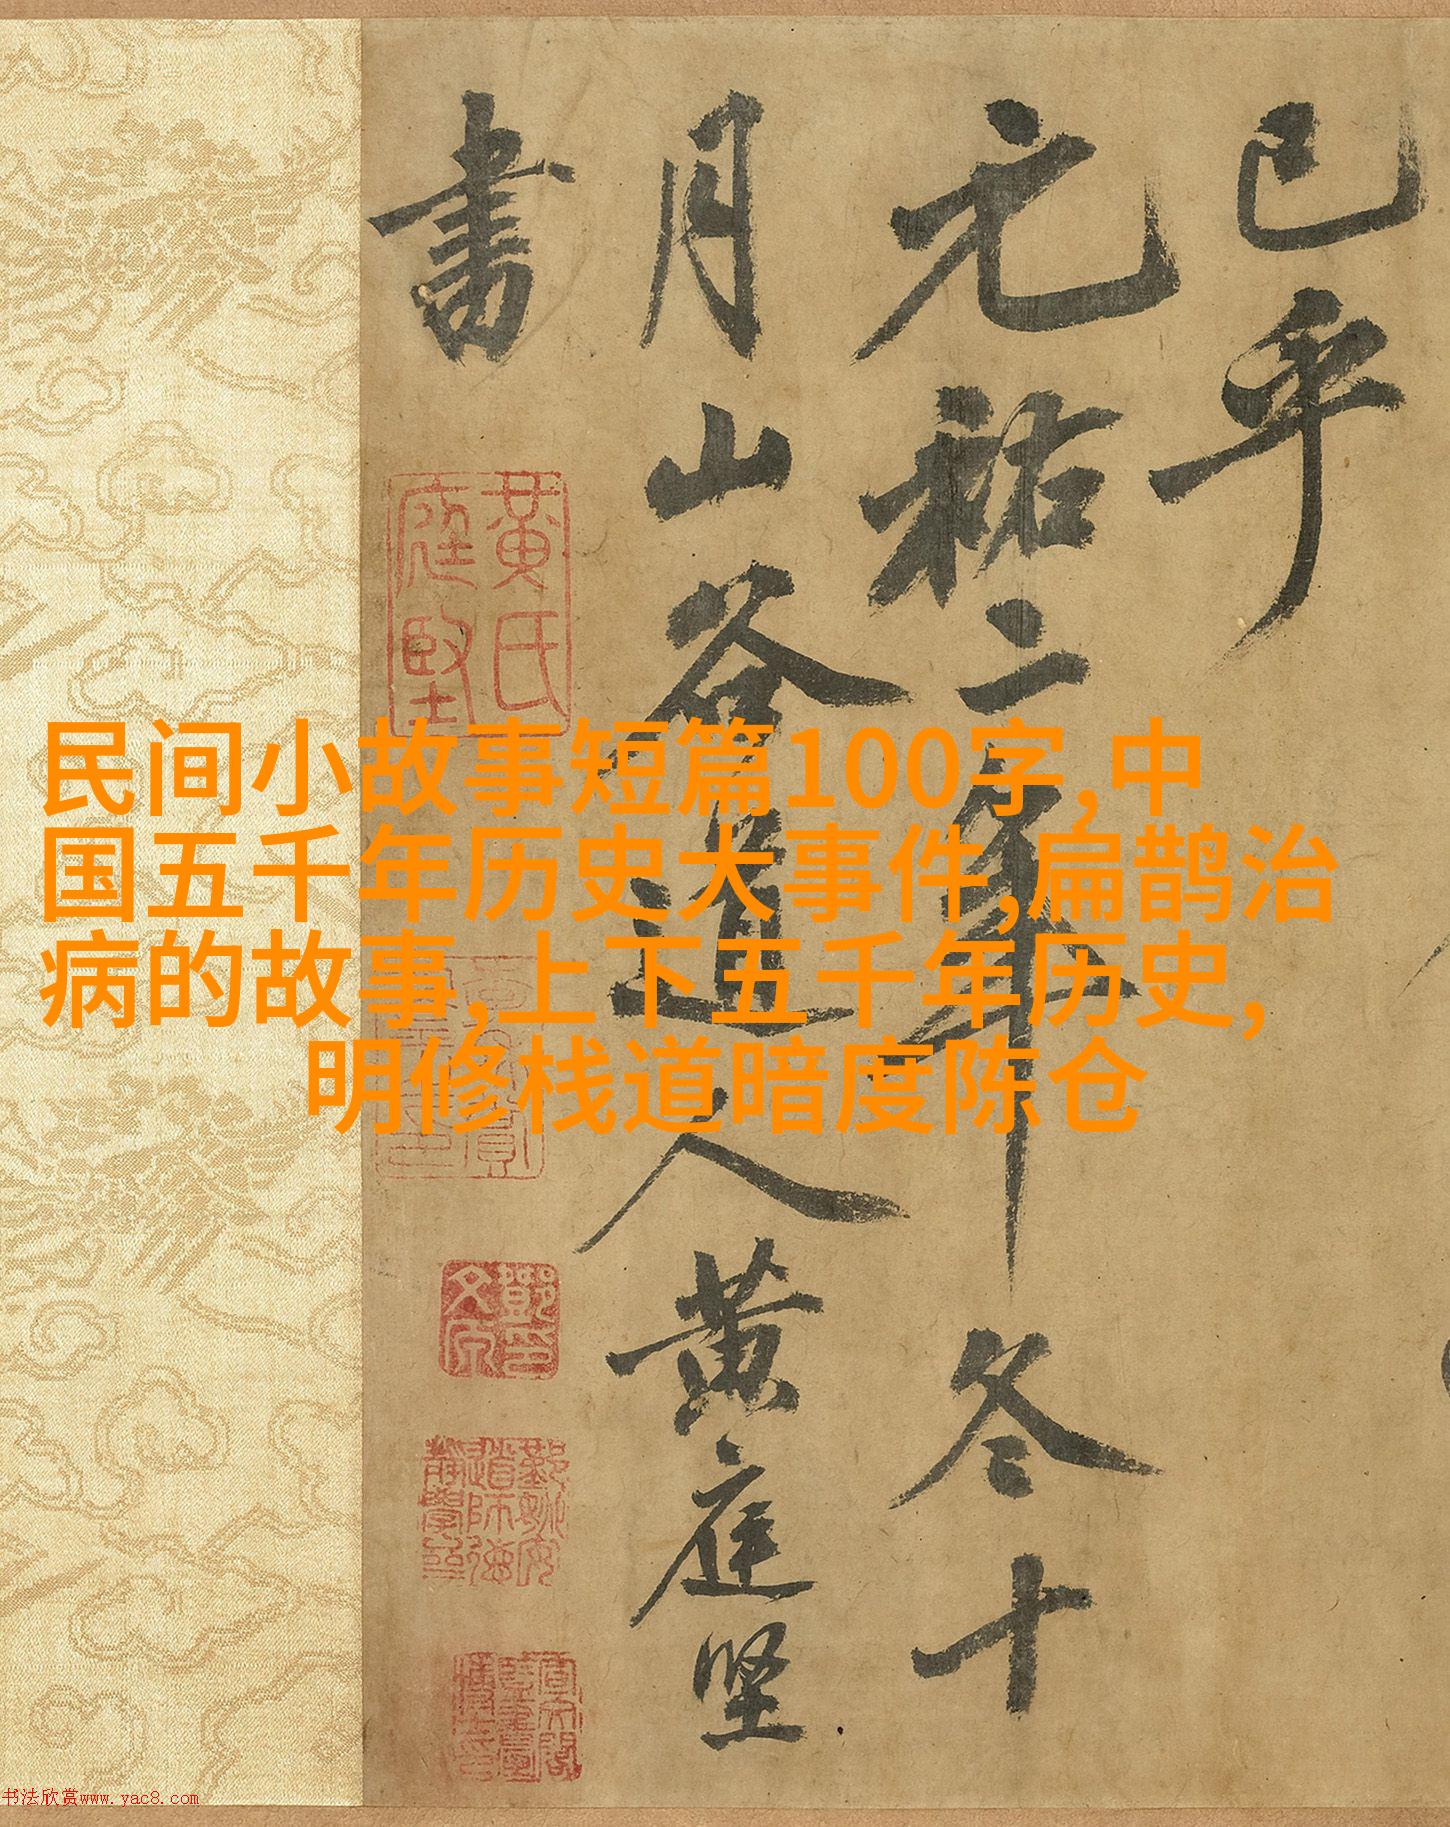 已乎
元祐二年冬十
月山谷道人黄庭坚
書
黄氏
庭堅
民间小故事短篇100字,中
国五千年历史大事件,扁鹊治
病的故事,上下五千年历史,
明修栈道暗度陈仓
书法欣赏www.yac8.com